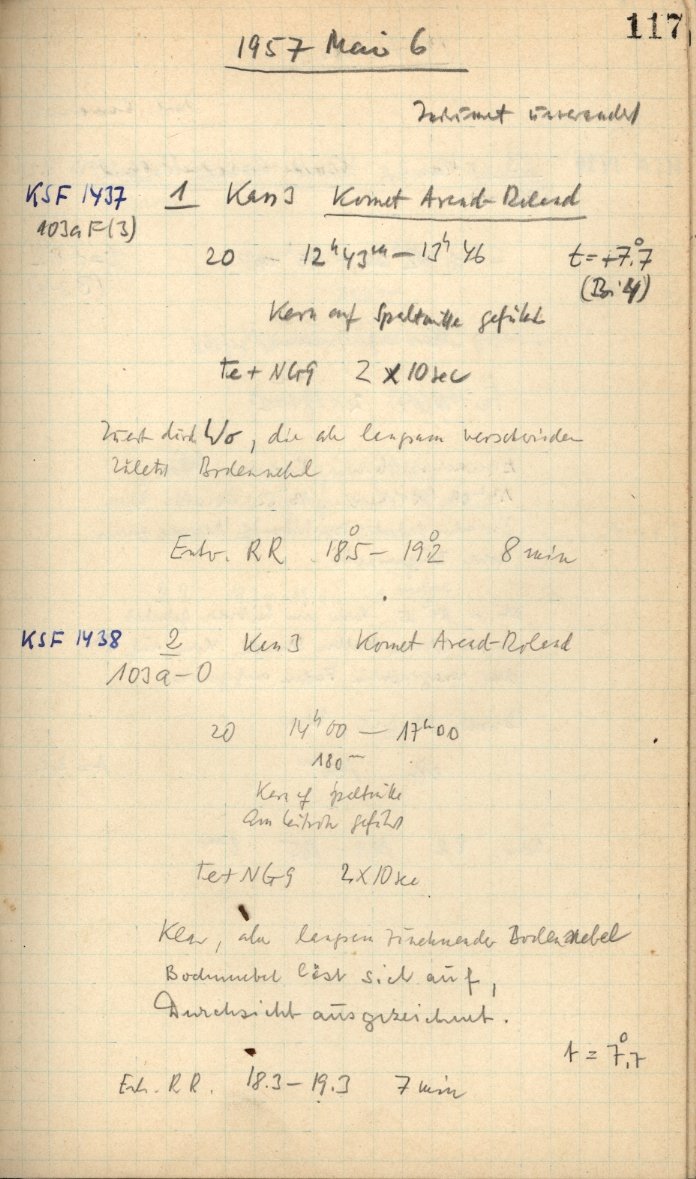 117
1957 Mai 6
Instrument unverändert
KSF 1437 1 Kass 3 Komet Arend-Roland
103a F(3)
20 12ʰ43ᵐ — 13ʰ46 t = +7°.7
Kern auf Spaltmitte geführt
Fe + NG9 2 x 10 sec
Zuerst durch Wo, die aber langsam verschwinden
Zuletzt Bodennebel
Entw. RR 18°.5 — 19°.2 8 min
KSF 1438 2 Kas 3 Komet Arend-Roland
103a-O
20 14ʰ00 — 17ʰ00
180ᵐ
Kern auf Spaltmitte
Am Leitrohr geführt
Fe + NG9 2 x 10 sec
Klar, aber langsam zunehmender Bodennebel
Bodennebel löst sich auf,
Durchsicht ausgezeichnet.
t = 7°.7
Entw. RR. 18.3 — 19.3 7 min